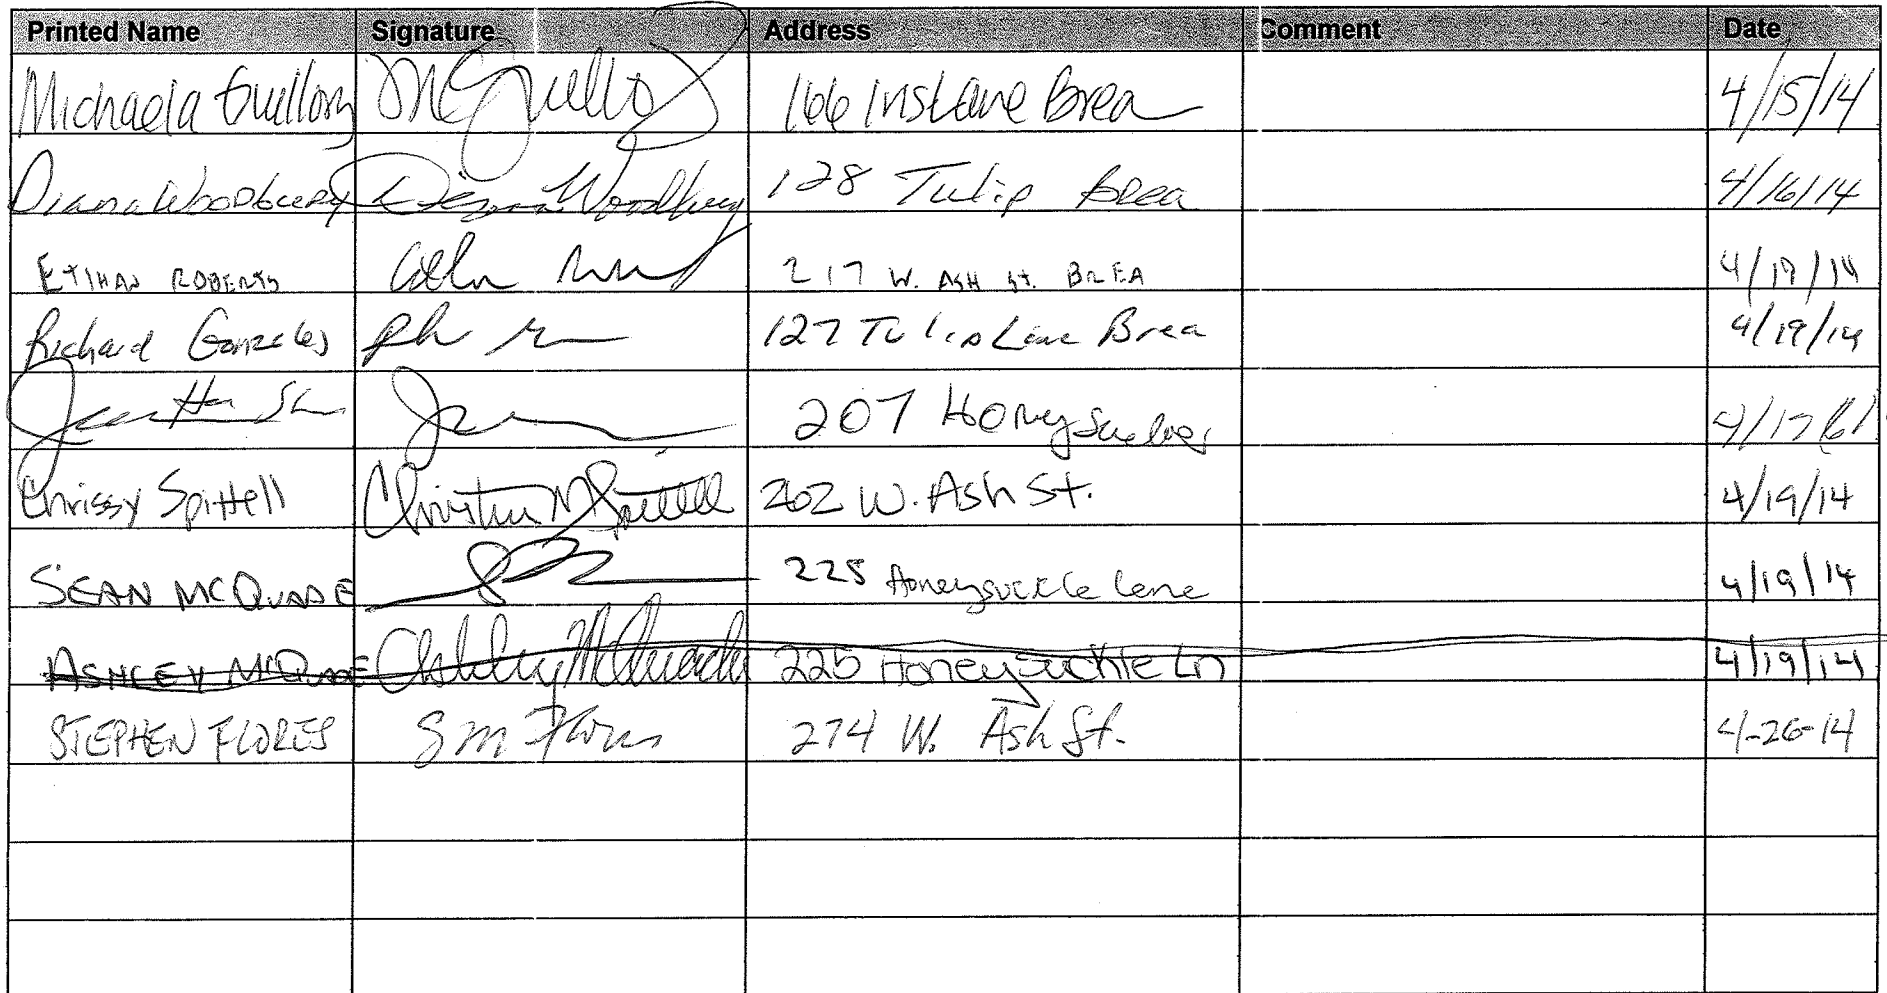 Printed Name Signature Address Comment Date
Michaela Guillory MGuillory 166 Iris Lane Brea 4/15/14
Diana Woodbury Diana Woodbury 128 Tulip Brea 4/16/14
ETHAN ROBERTS 217 W. ASH ST. BREA 4/19/14
Richard Gonzales 127 Tulip Lane Brea 4/19/14
207 Honeysuckle 4/17
Chrissy Spittell Christine M Spittell 202 W. Ash St. 4/19/14
SEAN MCQUADE 225 Honeysuckle Lane 4/19/14
ASHLEY MCQUADE Ashley McQuade 225 Honeysuckle Ln 4/19/14
STEPHEN FLORES S M Flores 274 W. Ash St. 4-26-14